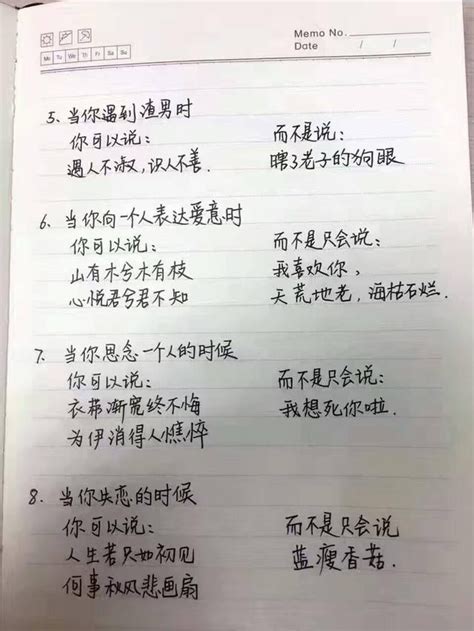 Memo No.
Mo Tu We Th Fr Sa Su
Date / /
5、当你遇到渣男时
你可以说： 而不是说：
遇人不淑，识人不善. 瞎了老子的狗眼
6、当你向一个人表达爱意时
你可以说： 而不是只会说：
山有木兮木有枝 我喜欢你，
心悦君兮君不知 天荒地老，海枯石烂.
7、当你思念一个人的时候
你可以说： 而不是只会说：
衣带渐宽终不悔 我想死你啦.
为伊消得人憔悴
8、当你失恋的时候
你可以说： 而不是只会说
人生若只如初见 蓝瘦香菇.
何事秋风悲画扇